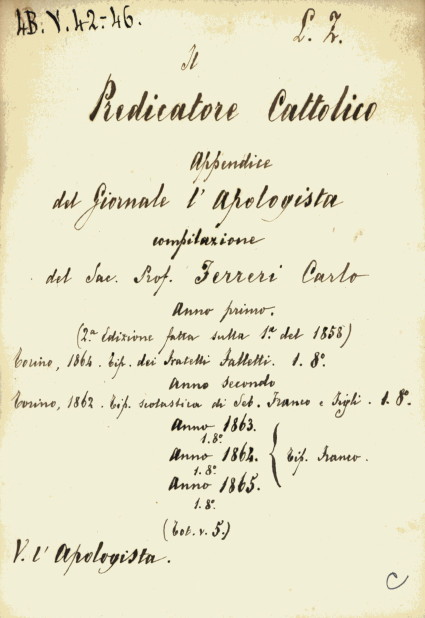 4B. V. 42-46.
L. Z.
Il
Predicatore Cattolico
Appendice
del Giornale l'Apologista
compilazione
del Sac. Prof. Ferreri Carlo
Anno primo.
(2.ª Edizione fatta sulla 1.ª del 1858)
Torino, 1864. Tip. dei Fratelli Falletti. 1. 8.º
Anno secondo
Torino, 1862. Tip. scolastica di Seb. Franco e Figli. 1. 8.º
Anno 1863.
1. 8.º
Anno 1864. Tip. Franco.
1. 8.º
Anno 1865.
1. 8.º
(Tot. v. 5.)
V. l'Apologista.
C